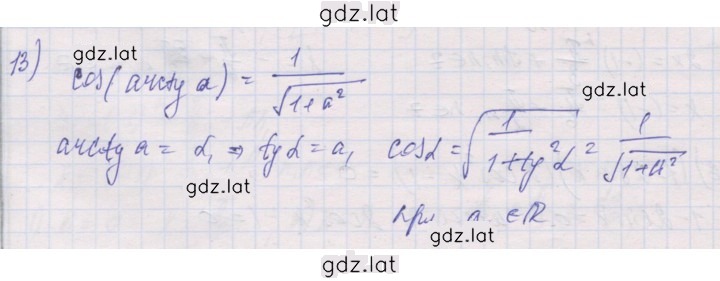 gdz.lat
13) cos(arctg a) = 1/√(1+a²)
gdz.lat
gdz.lat
arctg a = α, ⇒ tg α = a, cos α = √(1/(1+tg²α)) = 1/√(1+a²)
gdz.lat
при a ∈ R
gdz.lat
gdz.lat